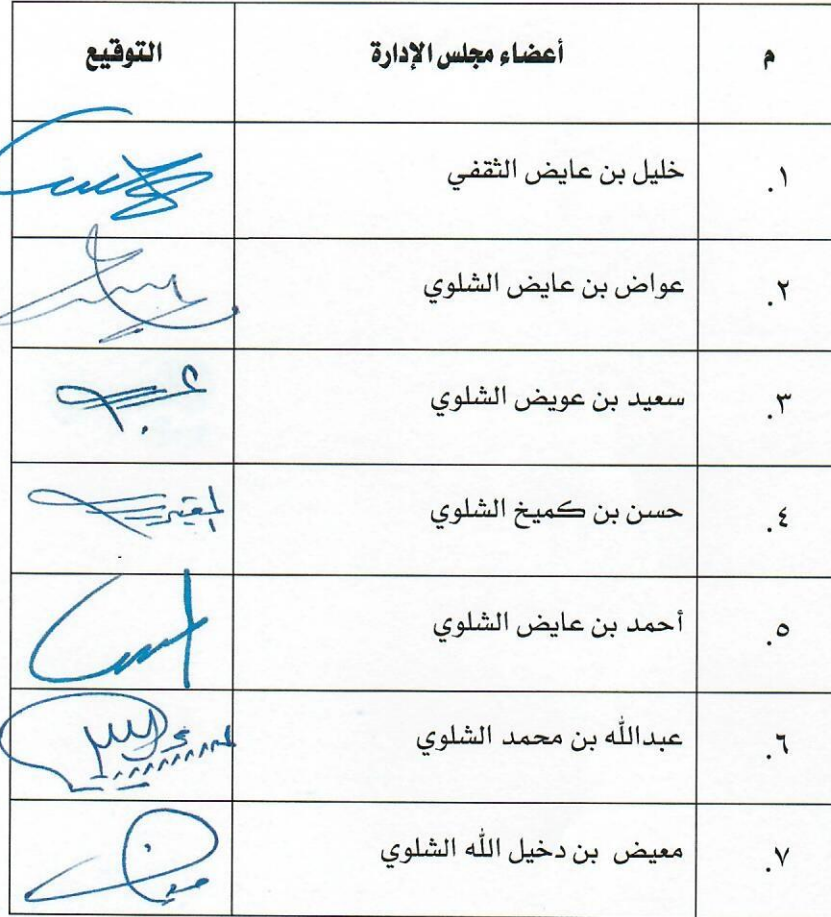 م أعضاء مجلس الإدارة التوقيع
١. خليل بن عايض الثقفي
٢. عواض بن عايض الشلوي
٣. سعيد بن عويض الشلوي
٤. حسن بن كميخ الشلوي
٥. أحمد بن عايض الشلوي
٦. عبدالله بن محمد الشلوي
٧. معيض بن دخيل الله الشلوي